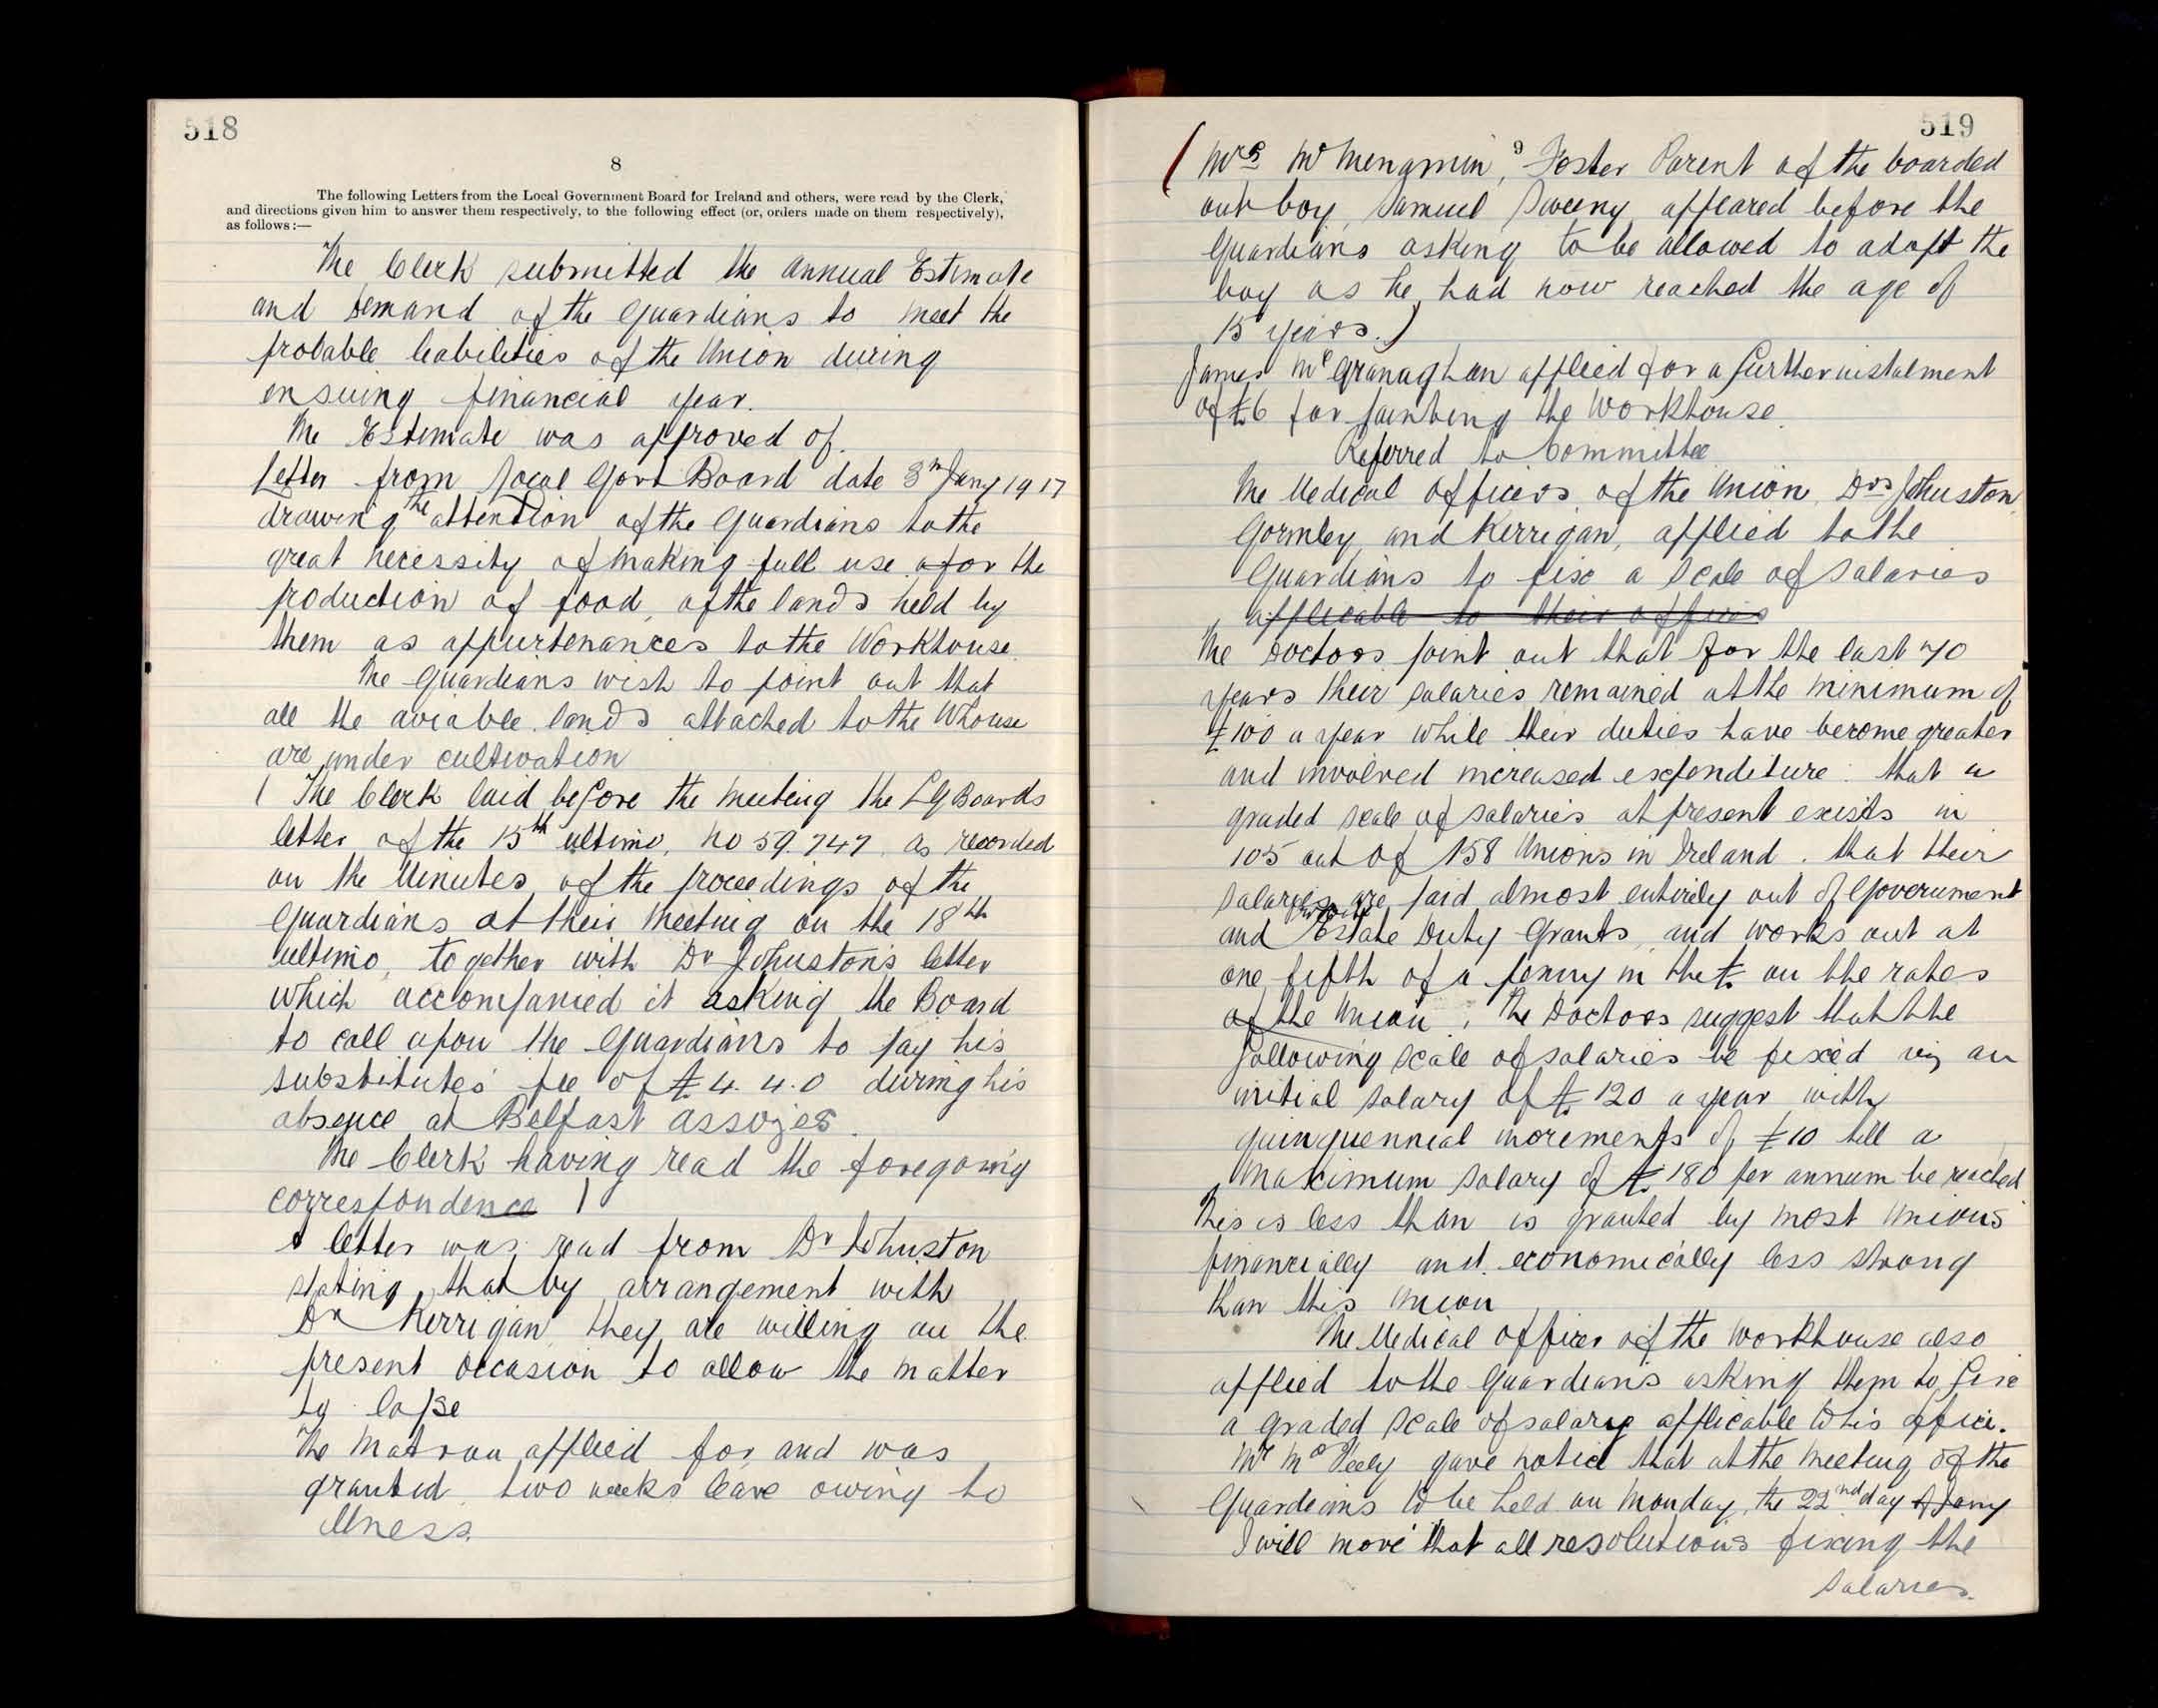 518
8
The following Letters from the Local Government Board for Ireland and others, were read by the Clerk,
and directions given him to answer them respectively, to the following effect (or, orders made on them respectively),
as follows:—
The Clerk submitted the annual Estimate
and Demand of the Guardians to meet the
probable liabilities of the Union during
ensuing financial year.
The Estimate was approved of.
Letter from Local Govt Board date 3rd Jany 1917
drawing the attention of the Guardians to the
great necessity of making full use for the
production of food, of the lands held by
them as appurtenances to the Workhouse.
The Guardians wish to point out that
all the aviable lands attached to the Whouse
are under cultivation
( The Clerk laid before the meeting the LG Boards
letter of the 15th ultimo, No 59.747 as recorded
on the Minutes of the proceedings of the
Guardians at their meeting on the 18th
ultimo, together with Dr Johnston's letter
which accompanied it asking the Board
to call upon the Guardians to pay his
substitutes' fee of £4.4.0 during his
absence at Belfast assozes.
The Clerk having read the foregoing
correspondence )
A letter was read from Dr Johnston
stating that by arrangement with
Dr Kerrigan they are willing on the
present occasion to allow the matter
to lapse
The Matron applied for and was
granted two weeks leave owing to
illness.
519
9
( Mrs McMenamin, Foster Parent of the boarded
out boy, Samuel Sweeny, appeared before the
Guardians asking to be allowed to adopt the
boy as he had now reached the age of
15 years.)
James McGranaghan applied for a further instalment
of £6 for painting the Workhouse.
Referred to Committee
The Medical Officers of the Union, Drs Johnston,
Gormley, and Kerrigan, applied to the
Guardians to fix a scale of salaries
applicable to their offices
The Doctors point out that for the last 40
years their salaries remained at the minimum of
£100 a year while their duties have become greater
and involved increased expenditure: that a
graded scale of salaries at present exists in
105 out of 158 Unions in Ireland. that their
salaries are paid almost entirely out of Government
and Estate Duty Grants, and works out at
one fifth of a penny in the £. on the rates
of the Union; The Doctors suggest that the
following scale of salaries be fixed viz an
initial salary of £120 a year with
quinquennial increments of £10 till a
maximum salary of £180 per annum be reached
This is less than is granted by most Unions
financially and economically less strong
than this Union
The Medical Officer of the Workhouse also
applied to the Guardians asking them to fix
a graded scale of salary applicable to his office.
Mr McFeely gave notice that at the meeting of the
Guardians to be held on Monday, the 22nd day of Jany
I will move that all resolutions fixing the
salaries.